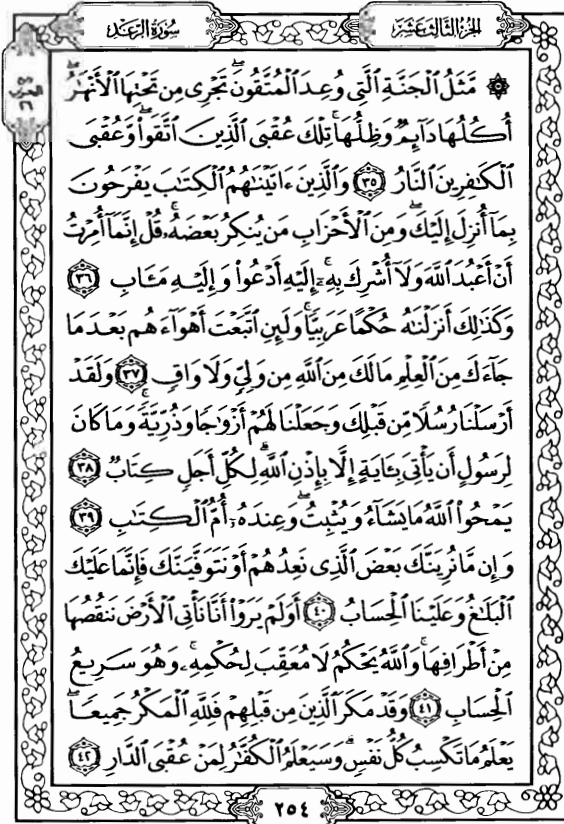 الجزء الثالث عشر
سورة الرعد
الحزب
٢٦
۞ مَّثَلُ الْجَنَّةِ الَّتِي وُعِدَ الْمُتَّقُونَ ۖ تَجْرِي مِن تَحْتِهَا الْأَنْهَٰرُ ۖ
أُكُلُهَا دَآئِمٌ وَظِلُّهَا ۚ تِلْكَ عُقْبَى الَّذِينَ اتَّقَوا۟ ۖ وَّعُقْبَى
الْكَٰفِرِينَ النَّارُ ٣٥ وَالَّذِينَ ءَاتَيْنَٰهُمُ الْكِتَٰبَ يَفْرَحُونَ
بِمَآ أُنزِلَ إِلَيْكَ ۖ وَمِنَ الْأَحْزَابِ مَن يُنكِرُ بَعْضَهُۥ ۚ قُلْ إِنَّمَآ أُمِرْتُ
أَنْ أَعْبُدَ اللَّهَ وَلَآ أُشْرِكَ بِهِۦٓ ۚ إِلَيْهِ أَدْعُوا۟ وَإِلَيْهِ مَـَٔابِ ٣٦
وَكَذَٰلِكَ أَنزَلْنَٰهُ حُكْمًا عَرَبِيًّا ۚ وَلَئِنِ اتَّبَعْتَ أَهْوَآءَهُم بَعْدَمَا
جَآءَكَ مِنَ الْعِلْمِ مَالَكَ مِنَ اللَّهِ مِن وَلِيٍّ وَلَا وَاقٍ ٣٧ وَلَقَدْ
أَرْسَلْنَا رُسُلًا مِّن قَبْلِكَ وَجَعَلْنَا لَهُمْ أَزْوَٰجًا وَذُرِّيَّةً ۚ وَمَا كَانَ
لِرَسُولٍ أَن يَأْتِيَ بِـَٔايَةٍ إِلَّا بِإِذْنِ اللَّهِ ۗ لِكُلِّ أَجَلٍ كِتَابٌ ٣٨
يَمْحُوا۟ اللَّهُ مَا يَشَآءُ وَيُثْبِتُ ۖ وَعِندَهُۥٓ أُمُّ الْكِتَٰبِ ٣٩
وَإِن مَّا نُرِيَنَّكَ بَعْضَ الَّذِي نَعِدُهُمْ أَوْ نَتَوَفَّيَنَّكَ فَإِنَّمَا عَلَيْكَ
الْبَلَٰغُ وَعَلَيْنَا الْحِسَابُ ٤٠ أَوَلَمْ يَرَوْا۟ أَنَّا نَأْتِي الْأَرْضَ نَنقُصُهَا
مِنْ أَطْرَافِهَا ۚ وَاللَّهُ يَحْكُمُ لَا مُعَقِّبَ لِحُكْمِهِۦ ۚ وَهُوَ سَرِيعُ
الْحِسَابِ ٤١ وَقَدْ مَكَرَ الَّذِينَ مِن قَبْلِهِمْ فَلِلَّهِ الْمَكْرُ جَمِيعًا ۖ
يَعْلَمُ مَا تَكْسِبُ كُلُّ نَفْسٍ ۗ وَسَيَعْلَمُ الْكُفَّٰرُ لِمَنْ عُقْبَى الدَّارِ ٤٢
٢٥٤